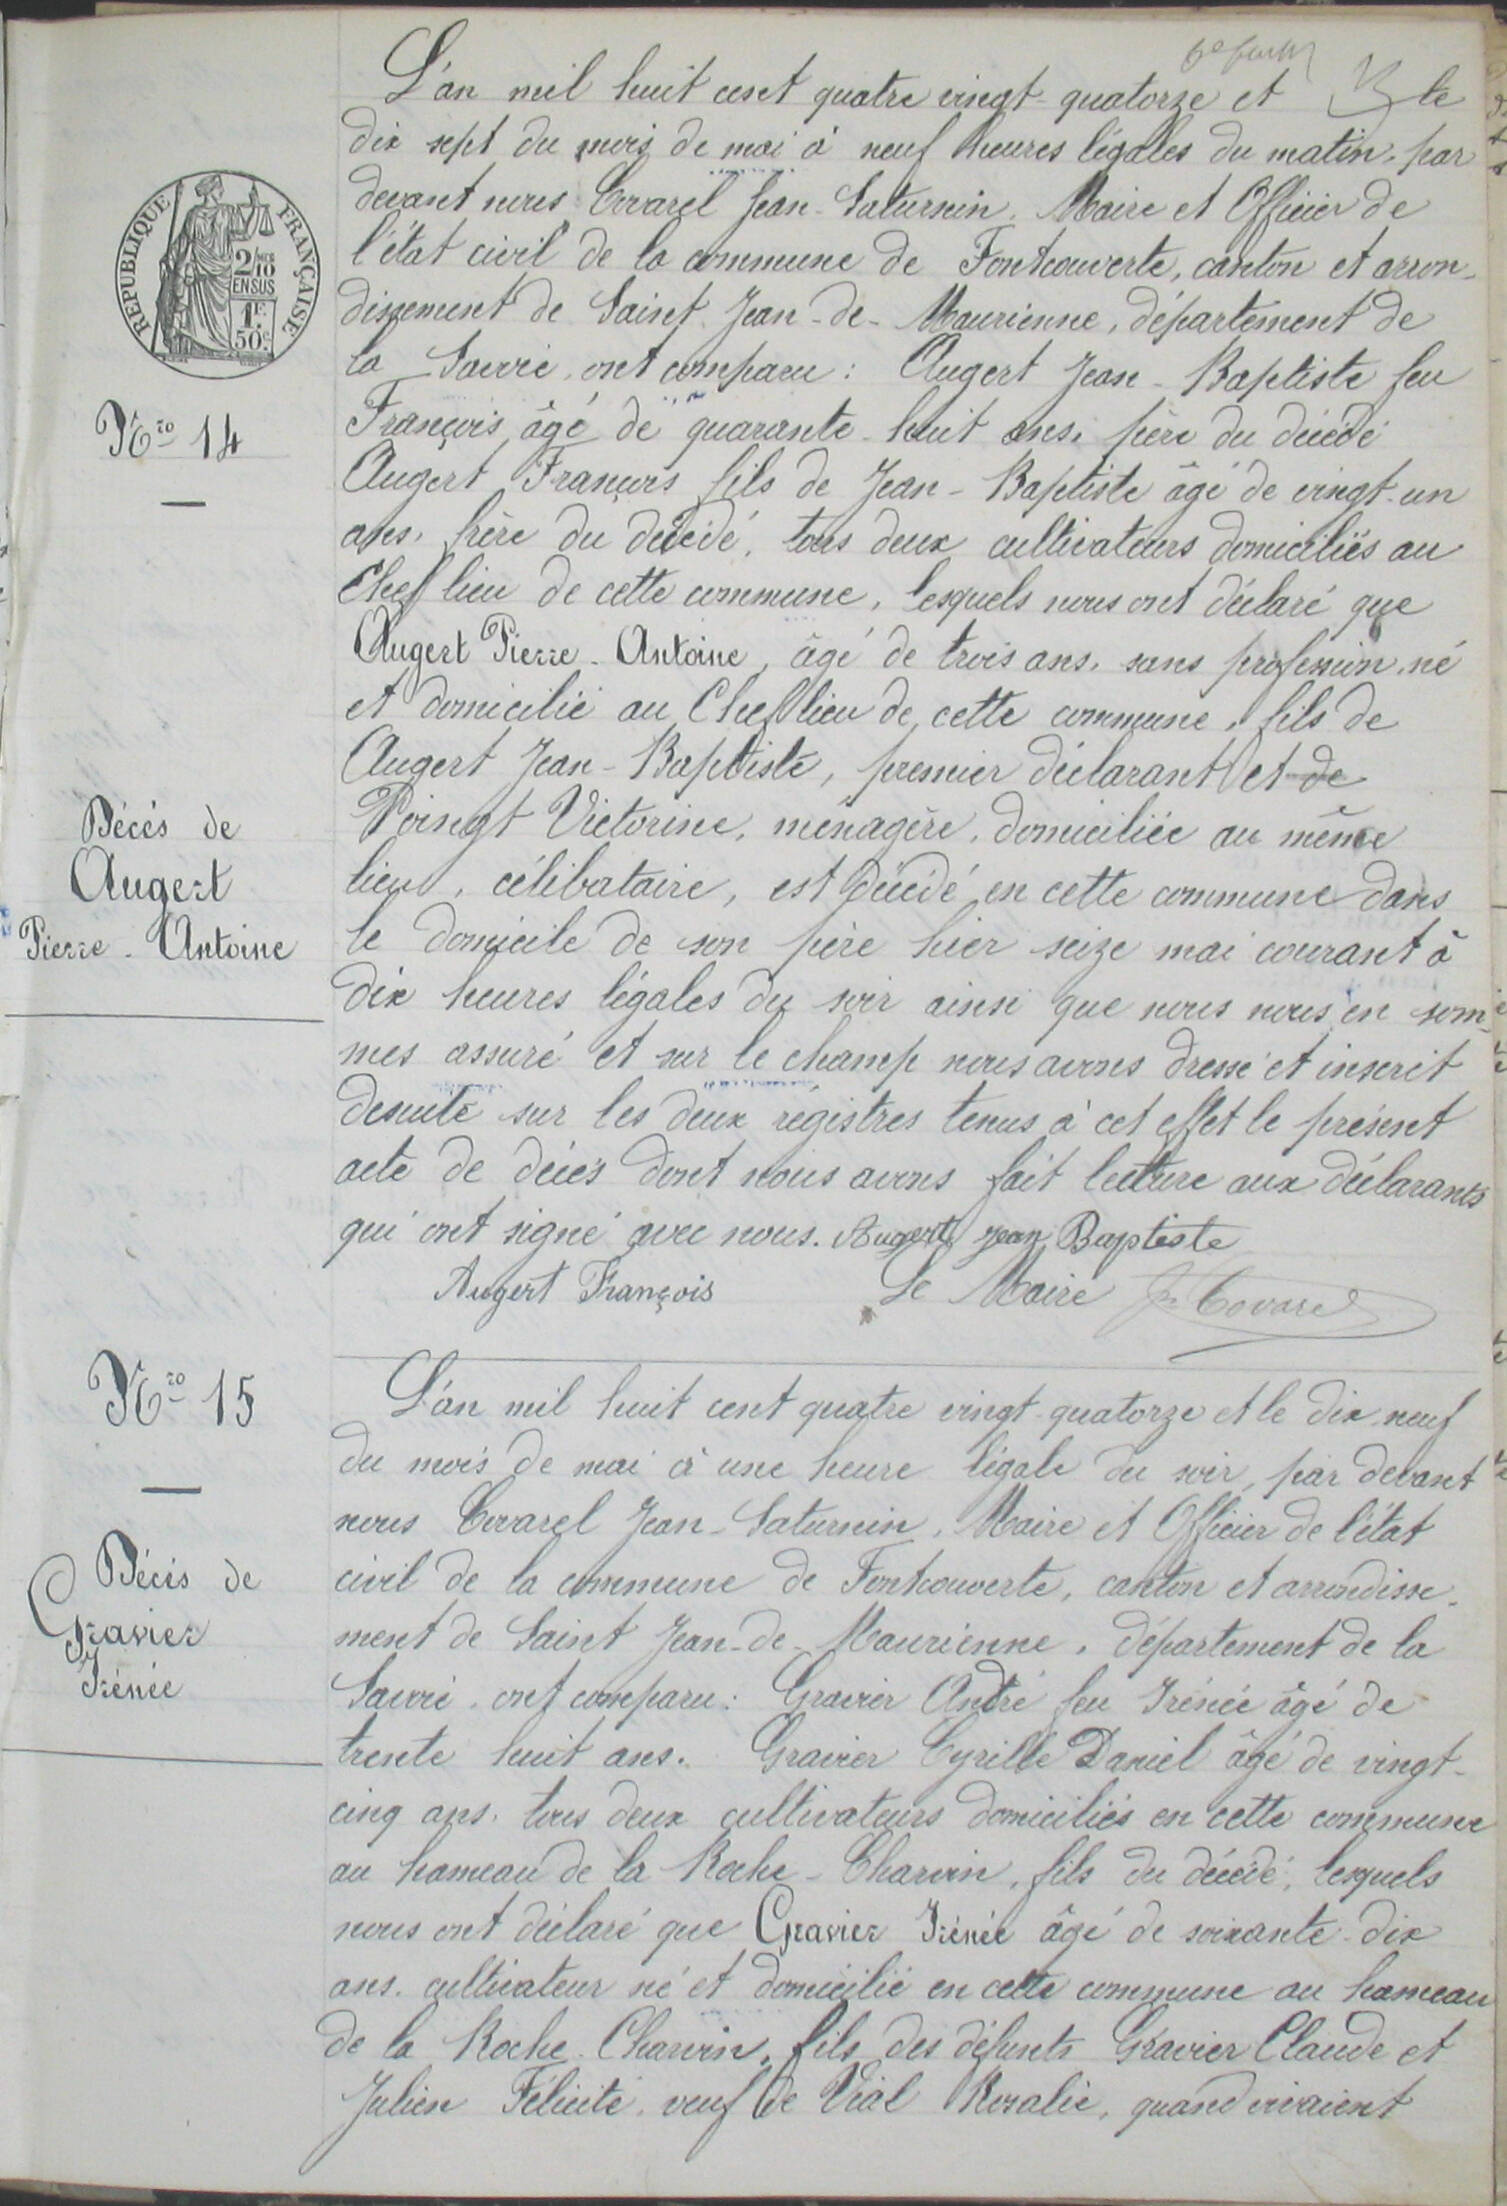 L'an mil huit cent quatre vingt-quatorze et le
dix sept du mois de mai à neuf heures légales du matin, par
devant nous Covarel Jean-Saturnin, Maire et Officier de
l'état civil de la commune de Fontcouverte, canton et arron-
dissement de Saint-Jean-de-Maurienne, département de
la Savoie, ont comparu: Augert Jean-Baptiste feu
François, âgé de quarante-huit ans, père du décédé
Augert François fils de Jean-Baptiste âgé de vingt-un
ans, frère du décédé, tous deux cultivateurs domiciliés au
Chef lieu de cette commune, lesquels nous ont déclaré que
Augert Pierre-Antoine, âgé de trois ans, sans profession, né
et domicilié au Chef lieu de cette commune, fils de
Augert Jean-Baptiste, premier déclarant et de
Poingt Victorine, ménagère, domiciliée au même
lieu, célibataire, est décédé en cette commune dans
le domicile de son père hier seize mai courant à
dix heures légales du soir ainsi que nous nous en som-
mes assuré et sur le champ nous avons dressé et inscrit
desuite sur les deux régistres tenus à cet effet le présent
acte de décès dont nous avons fait lecture aux déclarants
qui ont signé avec nous. Augert Jean Baptiste
Augert François Le Maire Jn Covarel
REPUBLIQUE FRANÇAISE
2/10
EN SUS
1F.
50c
Nro 14
Décès de
Augert
Pierre-Antoine
Nro 15
Décès de
Gravier
Irénée
L'an mil huit cent quatre vingt-quatorze et le dix-neuf
du mois de mai à une heure légale du soir, par devant
nous Covarel Jean-Saturnin, Maire et Officier de l'état
civil de la commune de Fontcouverte, canton et arrondisse-
ment de Saint Jean-de-Maurienne, département de la
Savoie, ont comparu: Gravier André feu Irénée âgé de
trente huit ans. Gravier Cyrille Daniel âgé de vingt-
cinq ans, tous deux cultivateurs domiciliés en cette commune
au hameau de la Roche-Charvin, fils du décédé, lesquels
nous ont déclaré que Gravier Irénée âgé de soixante-dix
ans, cultivateur né et domicilié en cette commune au hameau
de la Roche-Charvin, fils des défunts Gravier Claude et
Julien Félicité, veuf de Vial Rosalie, quand vivaient